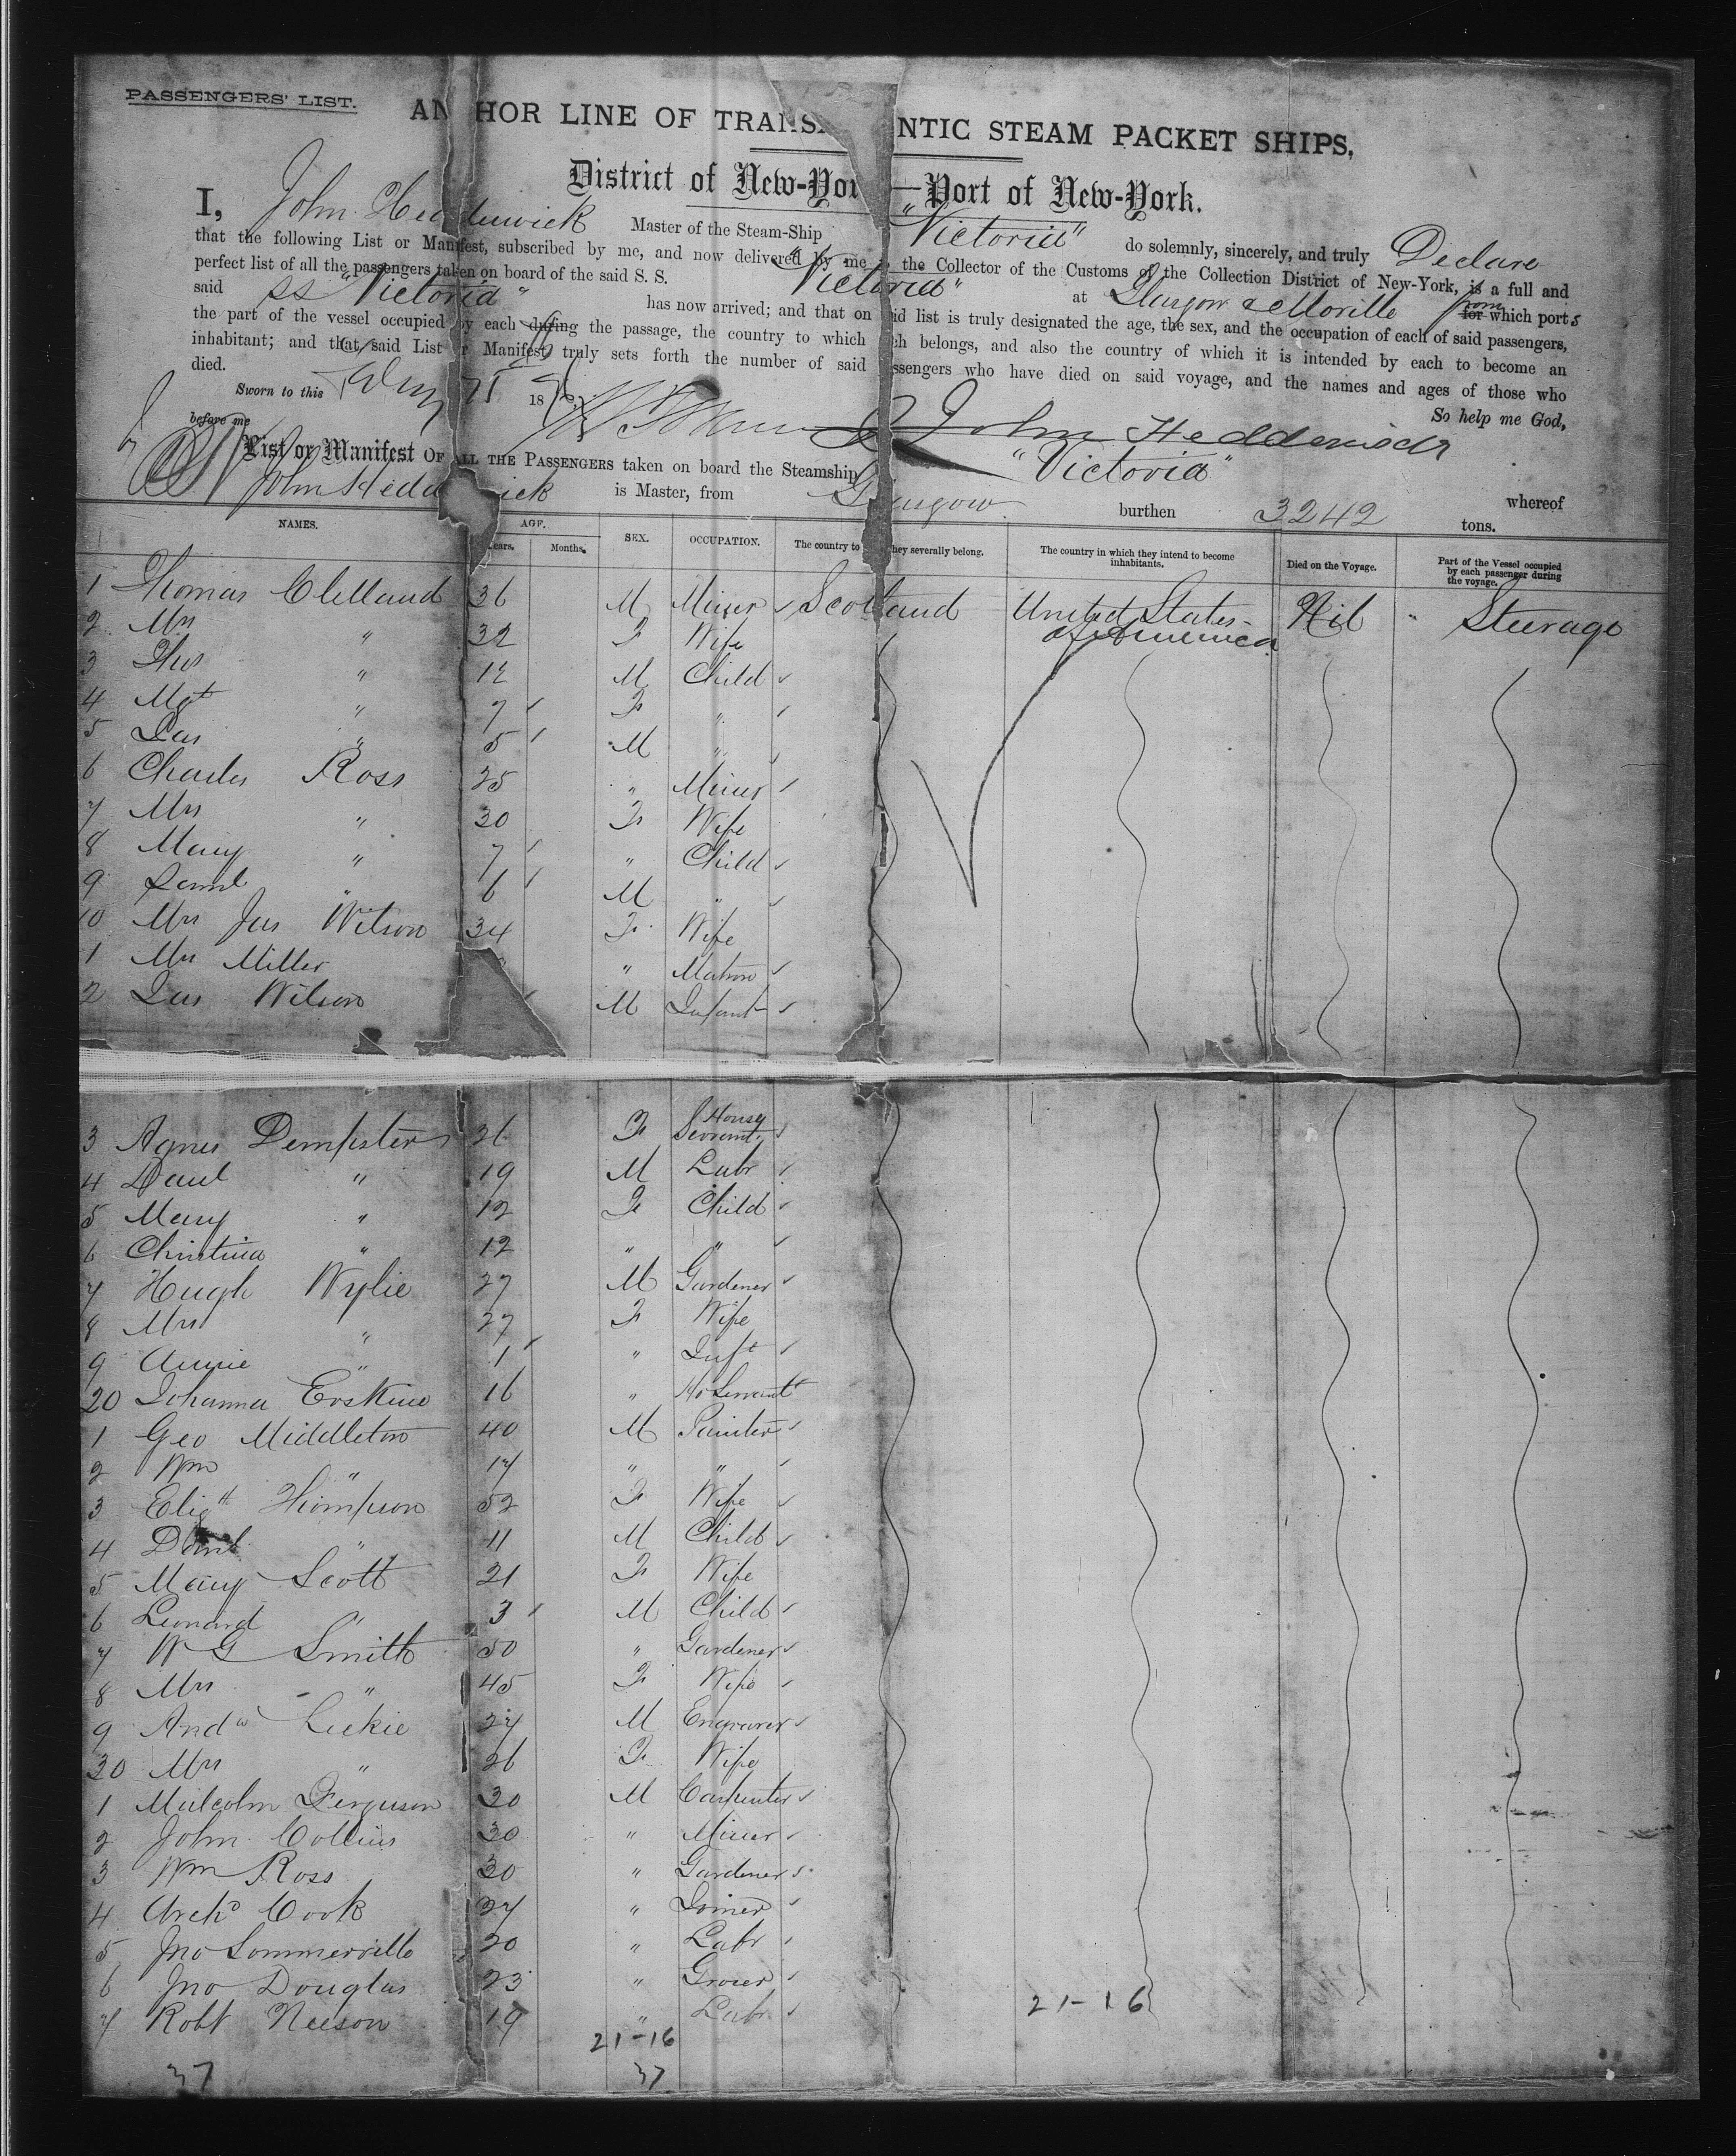 PASSENGERS' LIST.
AN HOR LINE OF TRANS NTIC STEAM PACKET SHIPS,
District of New-Yor — Port of New-York.
I, John Hedderwick Master of the Steam-Ship "Victoria" do solemnly, sincerely, and truly Declare
that the following List or Manifest, subscribed by me, and now delivered by me the Collector of the Customs of the Collection District of New-York, is a full and
perfect list of all the passengers taken on board of the said S. S. "Victoria" at Glasgow & Moville from for which ports
said SS "Victoria" has now arrived; and that on id list is truly designated the age, the sex, and the occupation of each of said passengers,
the part of the vessel occupied by each during the passage, the country to which ch belongs, and also the country of which it is intended by each to become an
inhabitant; and that said List or Manifest truly sets forth the number of said ssengers who have died on said voyage, and the names and ages of those who
died.
So help me God,
Sworn to this 18
before me
John Hedderwick
List or Manifest OF ALL THE PASSENGERS taken on board the Steamship "Victoria" whereof
John Hedd ick is Master, from Glasgow burthen 3242 tons.
NAMES. AGE. Years. Months. SEX. OCCUPATION. The country to hey severally belong. The country in which they intend to become inhabitants. Died on the Voyage. Part of the Vessel occupied by each passenger during the voyage.
1 Thomas Clelland 36 M Miner Scotland United States of America Nil Steerage
2 Mrs " 32 F Wife
3 Thos " 12 M Child
4 Mgt " 7 F "
5 Jas " 5 M "
6 Charles Ross 25 " Miner
7 Mrs " 30 F Wife
8 Mary " 7 " Child
9 Saml " 6 M "
10 Mrs Jas Wilson 34 F Wife
1 Mrs Miller " Matron
2 Jas Wilson M Infant
3 Agnes Dempster 26 F House Servant
4 Danl " 19 M Labr
5 Mary " 12 F Child
6 Christina " 12 " "
7 Hugh Wylie 27 M Gardener
8 Mrs " 27 F Wife
9 Annie " 1 " Inft
20 Johanna Erskine 16 " Ho Servant
1 Geo Middleton 40 M Painter
2 Wm " 17 " "
3 Elizth Thompson 52 F Wife
4 Danl " 11 M Child
5 Mary Scott 21 F Wife
6 Leonard " 3 M Child
7 W G Smith 50 " Gardener
8 Mrs " 45 F Wife
9 Andw Leckie 27 M Engraver
30 Mrs " 26 F Wife
1 Malcolm Ferguson 30 M Carpenter
2 John Collins 30 " Miner
3 Wm Ross 30 " Gardener
4 Archd Cook 27 " Joiner
5 Jno Sommerville 20 " Labr
6 Jno Douglas 23 " Grocer
7 Robt Neeson 19 " Labr
21-16 21-16
37 37